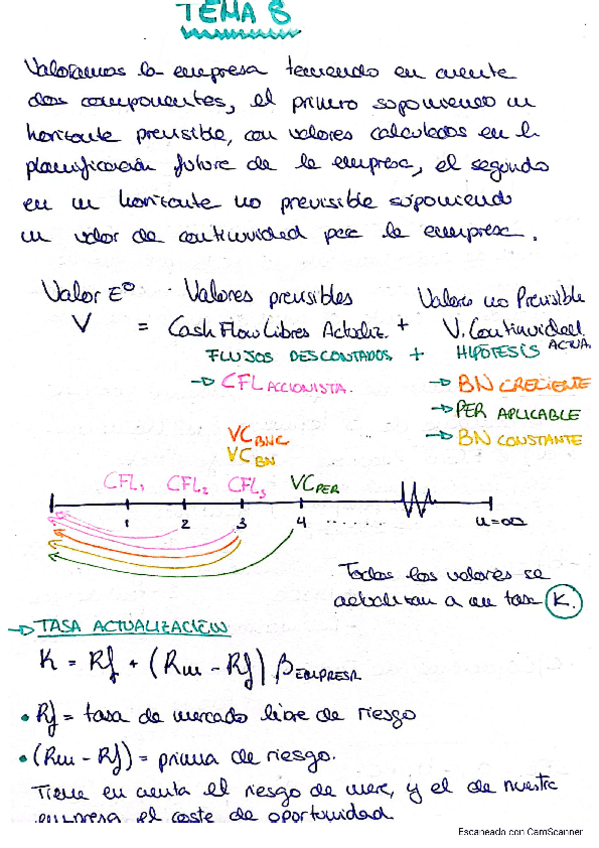 TEMA 8
Valoramos la empresa teniendo en cuenta
dos componentes, el primero suponiendo un
horizonte previsible, con valores calculados en la
planificación futura de la empresa, el segundo
en un horizonte no previsible suponiendo
un valor de continuidad para la empresa.
Valor Eª Valores previsibles Valores no Previsible
V = Cash Flow Libres Actualiz. + V. Continuidad ACTUA.
FLUJOS DESCONTADOS + HIPÓTESIS
→ CFL ACCIONISTA. → BN CRECIENTE
→ PER APLICABLE
→ BN CONSTANTE
VC BNC
VC BN
CFL1 CFL2 CFL3 VC PER
1 2 3 4 ...... n=∞
Todos los valores se
actualizan a un tasa K.
→ TASA ACTUALIZACIÓN
K = Rf + (Rm - Rf) β EMPRESA
• Rf = tasa de mercado libre de riesgo
• (Rm - Rf) = prima de riesgo.
Tiene en cuenta el riesgo de merc, y el de nuestra
empresa el coste de oportunidad.
Escaneado con CamScanner